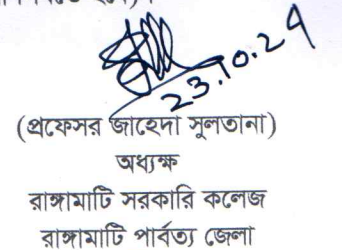 23.10.24
(প্রফেসর জাহেদা সুলতানা)
অধ্যক্ষ
রাঙ্গামাটি সরকারি কলেজ
রাঙ্গামাটি পার্বত্য জেলা